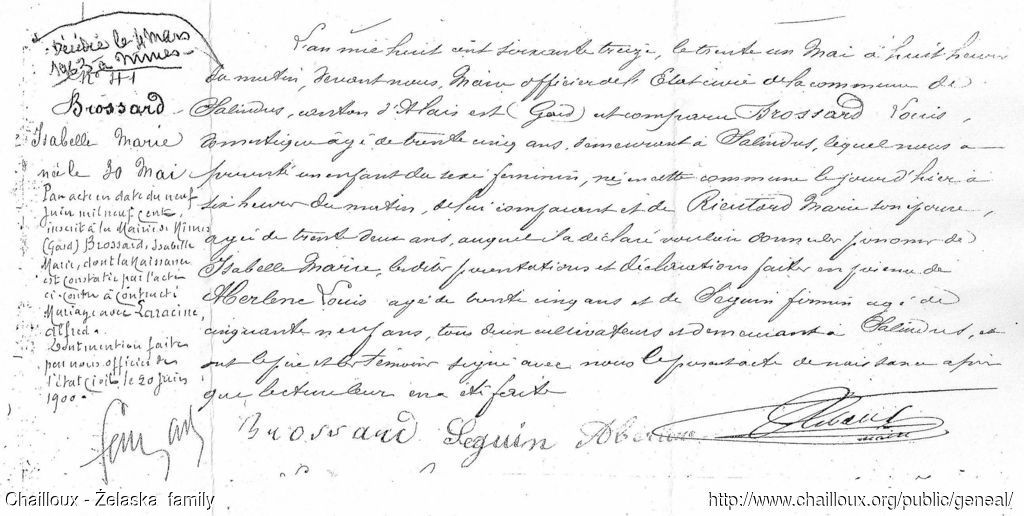 Décédée le 4 Mars
1963 à Nîmes
Brossard
Isabelle Marie
née le 30 Mai
Par acte en date du neuf
juin mil neuf cent,
inscrit à la Mairie de Nimes
(Gard) Brossard, Isabelle
Marie, dont la naissance
est constatée par l'acte
ci-contre a contracté
Mariage avec Laracine,
Alfred.
Dont mention faite
par nous officier de
l'état civil le 20 juin
1900.
L'an mil huit cent soixante treize, le trente un Mai à huit heures
du matin, devant nous, Maire officier de l'Etat civil de la commune de
Salindres, canton d'Alais est (Gard) est comparu Brossard Louis,
domestique agé de trente cinq ans, demeurant à Salindres, lequel nous a
présenté un enfant du sexe féminin, né en cette commune le jour d'hier à
six heures du matin, de lui comparant et de Rieutard Marie son épouse,
agée de trente deux ans, auquel il a déclaré vouloir donner les prénoms de
Isabelle Marie, lesdites présentations et déclarations faites en présence de
Aberlenc Louis agé de trente cinq ans et de Seguin firmin agé de
cinquante neuf ans, tous deux cultivateurs et demeurant à Salindres, et
ont le père et les témoins signé avec nous le présent acte de naissance après
que lecture leur en a été faite
Brossard Seguin Aberlenc
maire
Chailloux - Želaska family
http://www.chailloux.org/public/geneal/